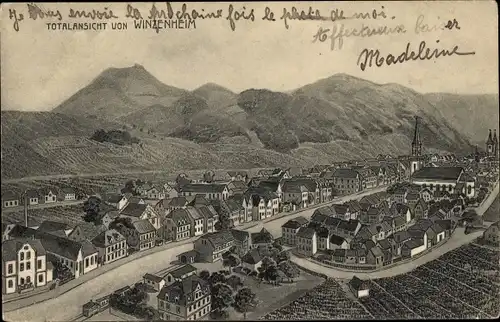 Je vous envoie la Prochaine fois le plat de moi.
TOTALANSICHT VON WINZENHEIM
Affectueux baiser
Madeleine